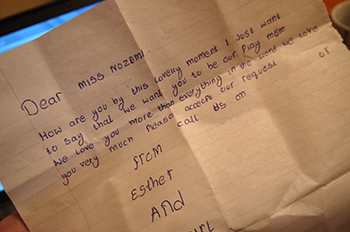 Dear MISS NOZEMI
How are you by this lovelly moment I Just want
to say that we want you to be our Play mom
We Love you more than everything in the world we love
you very much Please accecpt our request or
call us on
from
Esther
And